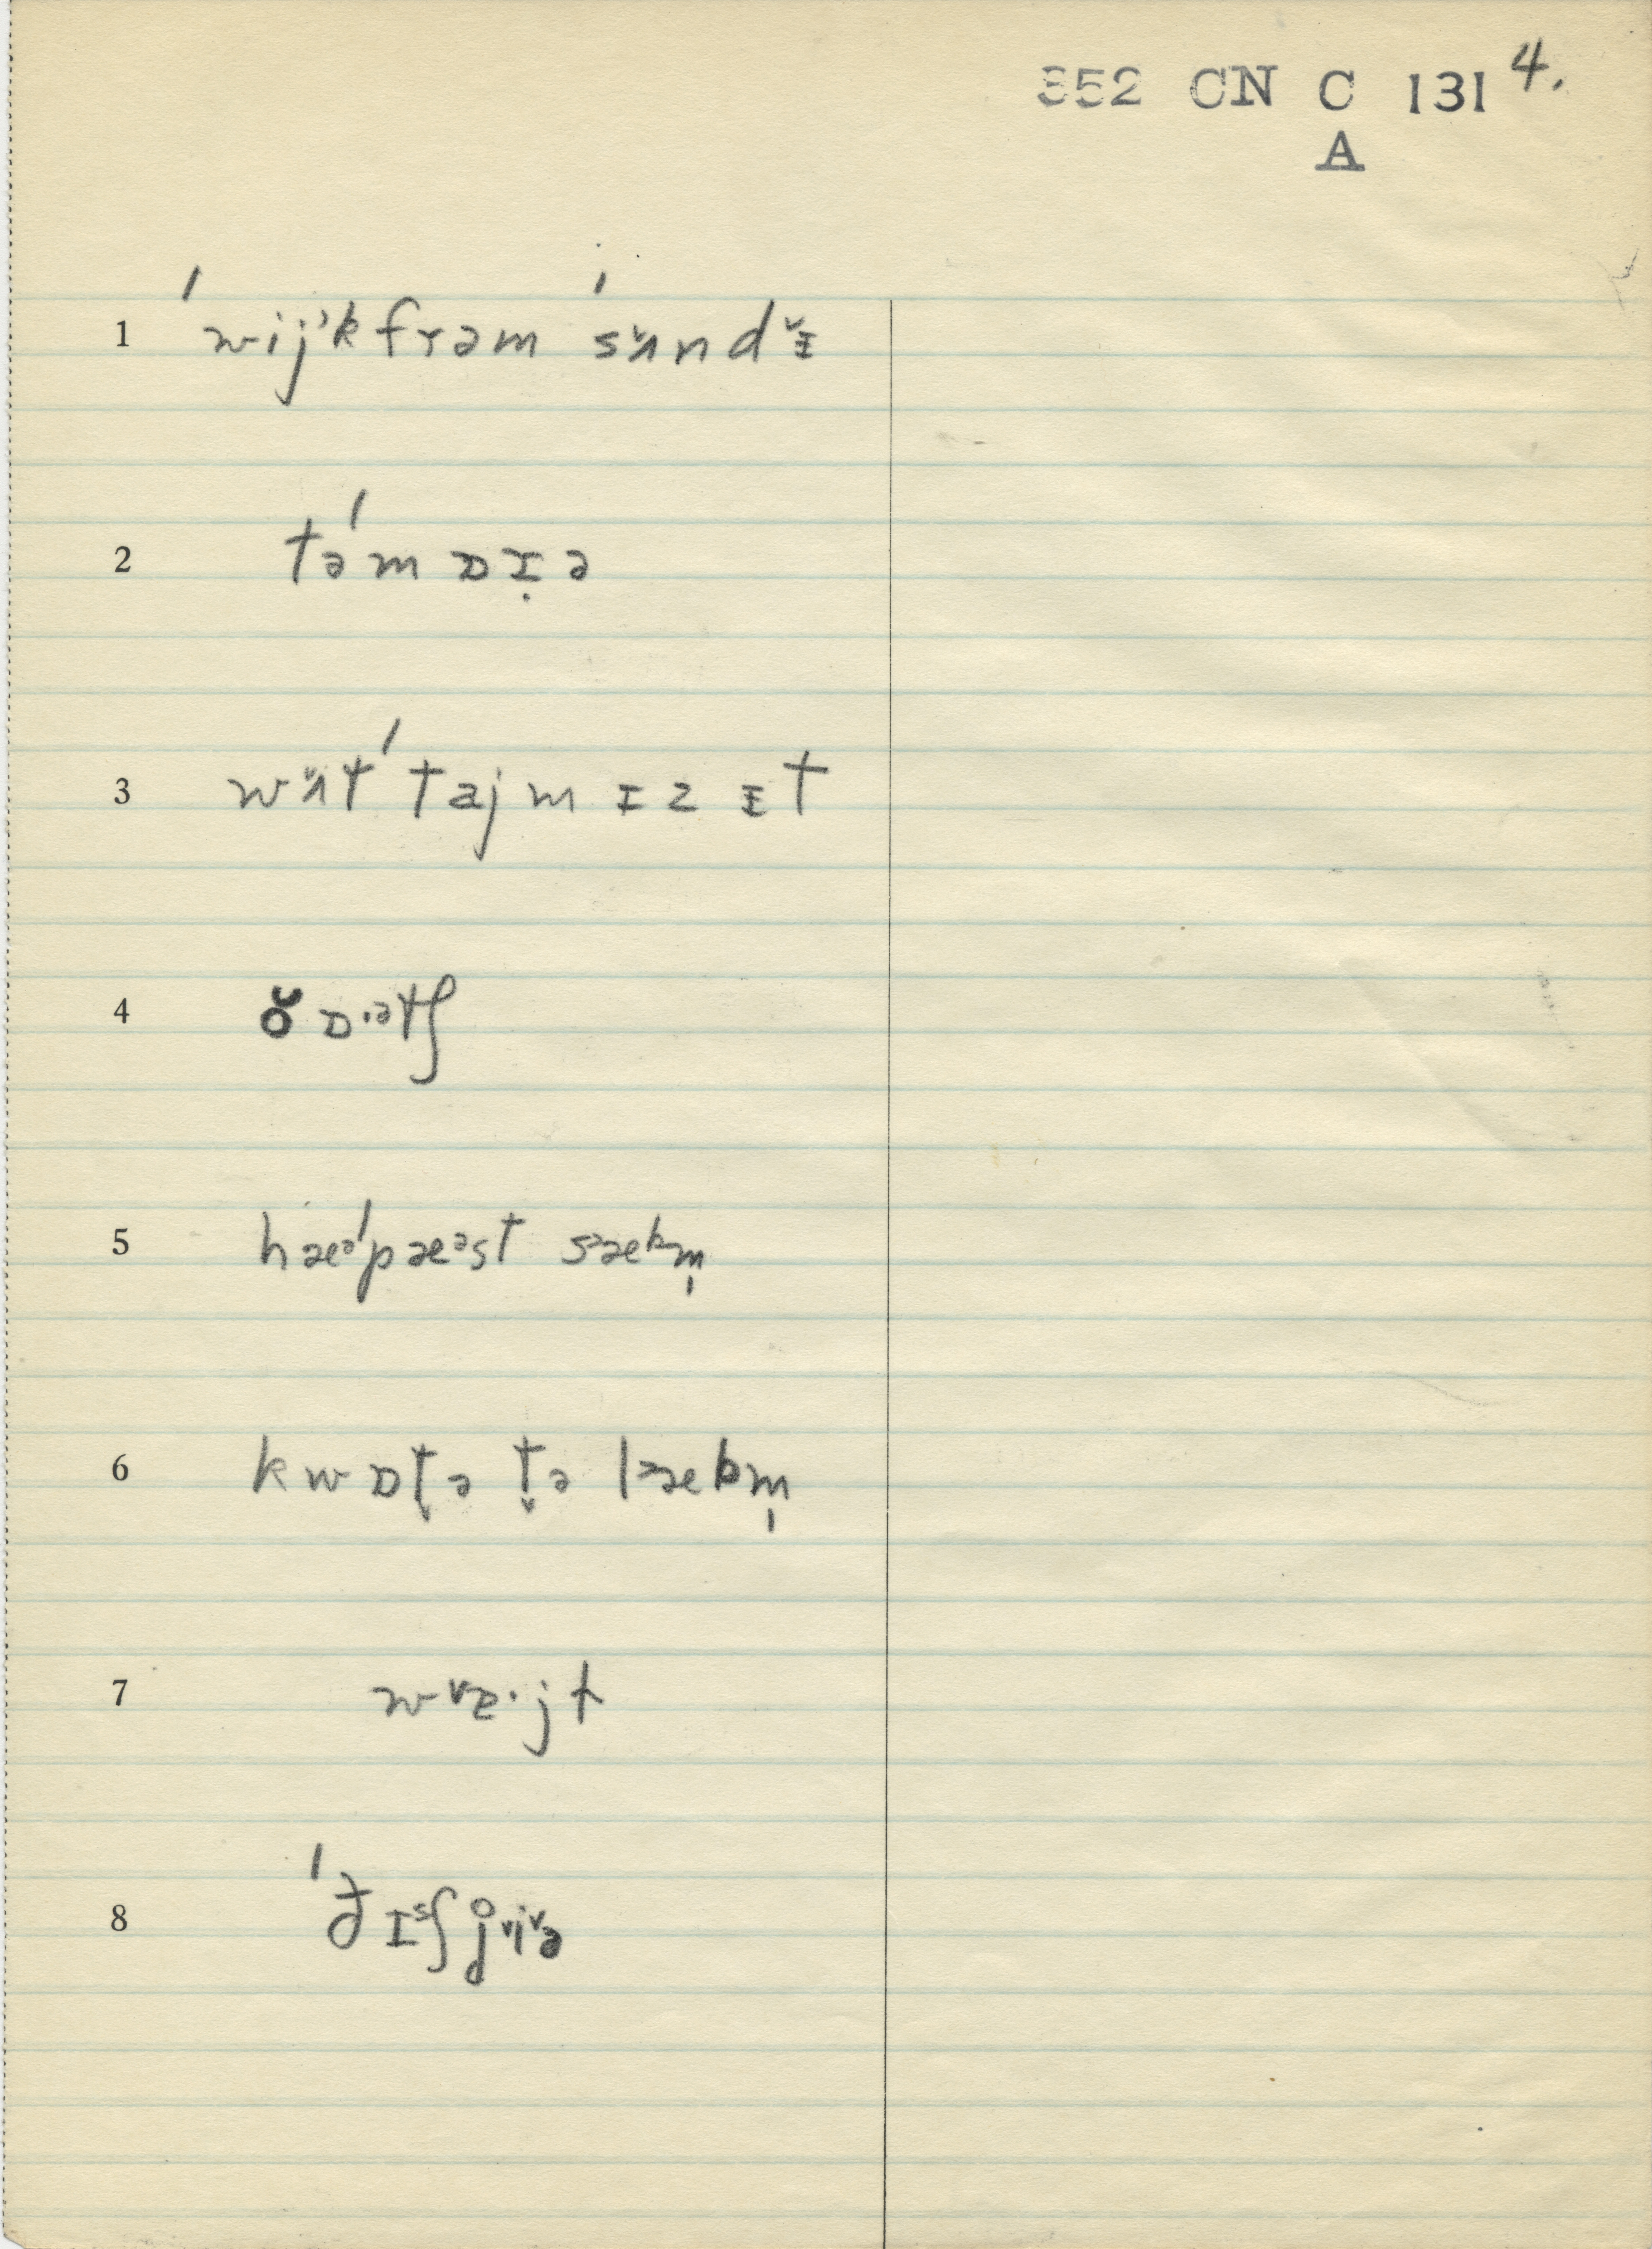 352 CN C 131 4.
A
1 ˈwijᵊkfrəm ˈsʌ̆ndɪ̆
2 təˈmɒɪ̣ə
3 wʌ̆tˈtajm ɪz ɪt
4 ŏ ɒ·ᵊtʃ
5 hæᵊˈpæᵊst sᵊæbm̩
6 kwɒt̬ə t̬ə lᵊæbm̩
7 w˅ɐ·jt
8 ˈðɪˢʃj̊˅i˅ə